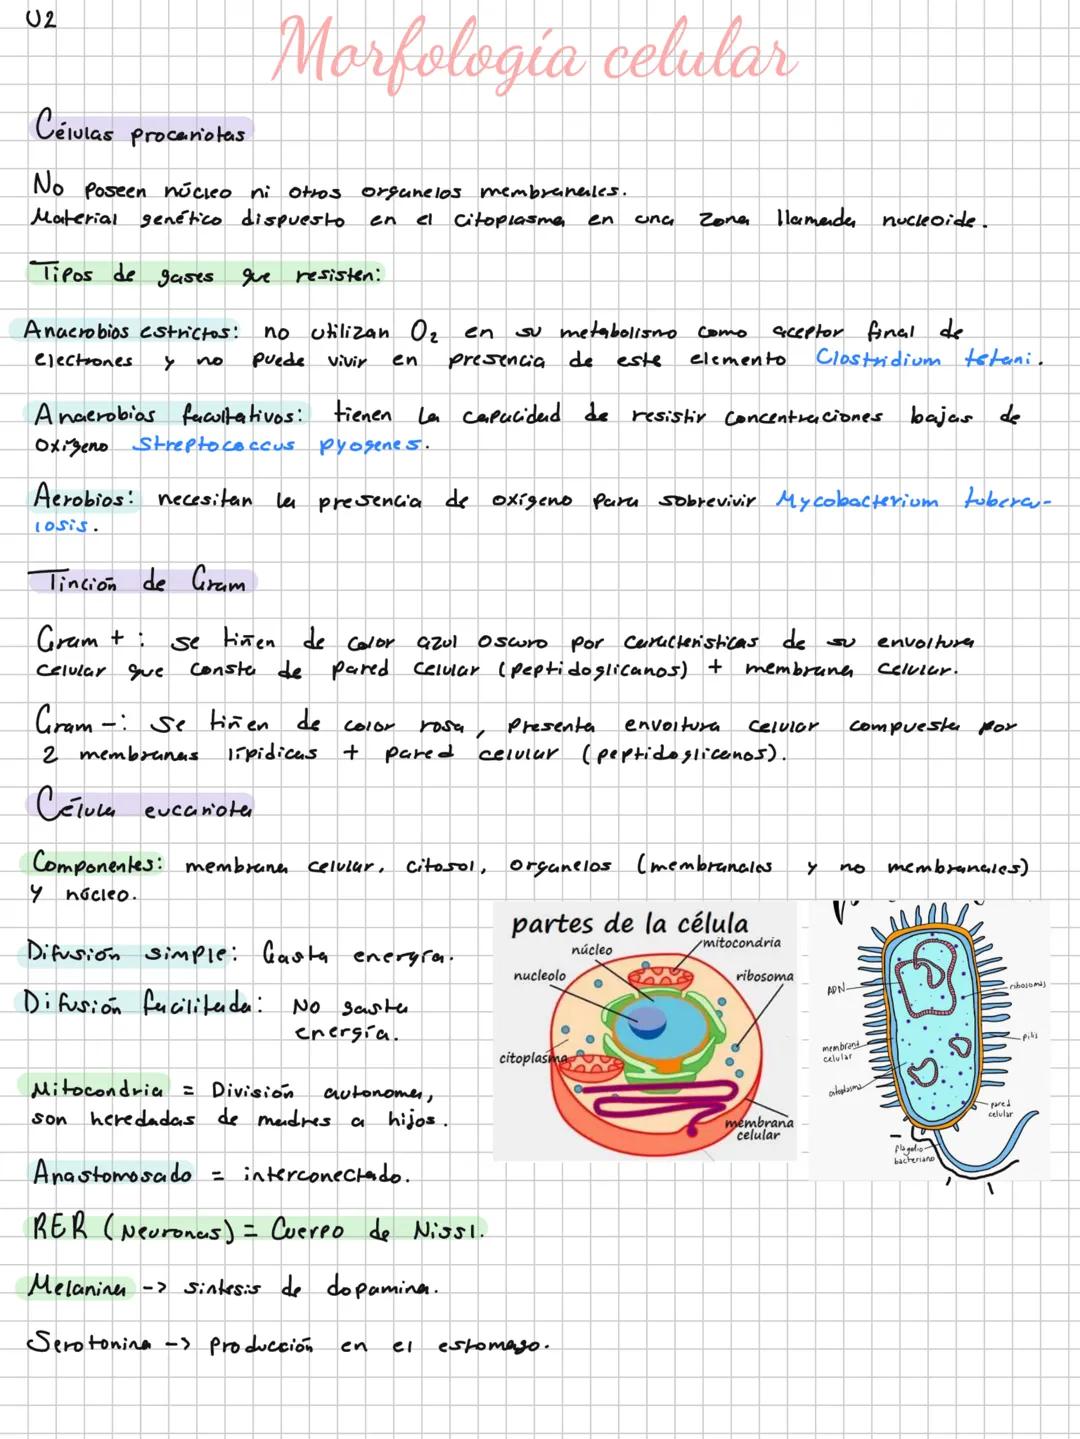 U2
Morfología celular
Células procariotas
No poseen núcleo ni otros organelos membranales.
Material genético dispuesto en el citoplasma en una zona llamada nucleoide.
Tipos de gases que resisten:
Anaerobios estrictos: no utilizan O2 en su metabolismo como aceptor final de
electrones y no puede vivir en presencia de este elemento Clostridium tetani.
Anaerobios facultativos: tienen la capacidad de resistir concentraciones bajas de
oxígeno Streptococcus pyogenes.
Aerobios: necesitan la presencia de oxígeno para sobrevivir Mycobacterium tubercu-
losis.
Tinción de Gram
Gram + : se tiñen de color azul oscuro por características de su envoltura
celular que consta de pared celular (peptidoglicanos) + membrana celular.
Gram -: se tiñen de color rosa, presenta envoltura celular compuesta por
2 membranas lipídicas + pared celular (peptidoglicanos).
Célula eucariota
Componentes: membrana celular, citosol, organelos (membranales y no membranales)
y núcleo.
Difusión simple: Gasta energía.
Difusión facilitada: No gasta
energía.
Mitocondria = División autonoma,
son heredadas de madres a hijos.
Anastomosado = interconectado.
RER (Neuronas) = Cuerpo de Nissl.
Melanina -> sintesis de dopamina.
Serotonina -> Producción en el estomago.
partes de la célula
núcleo
mitocondria
nucleolo
ribosoma
citoplasma
membrana
celular
ADN
ribosomas
membrana
celular
pilis
citoplasma
pared
celular
flagelo
bacteriano